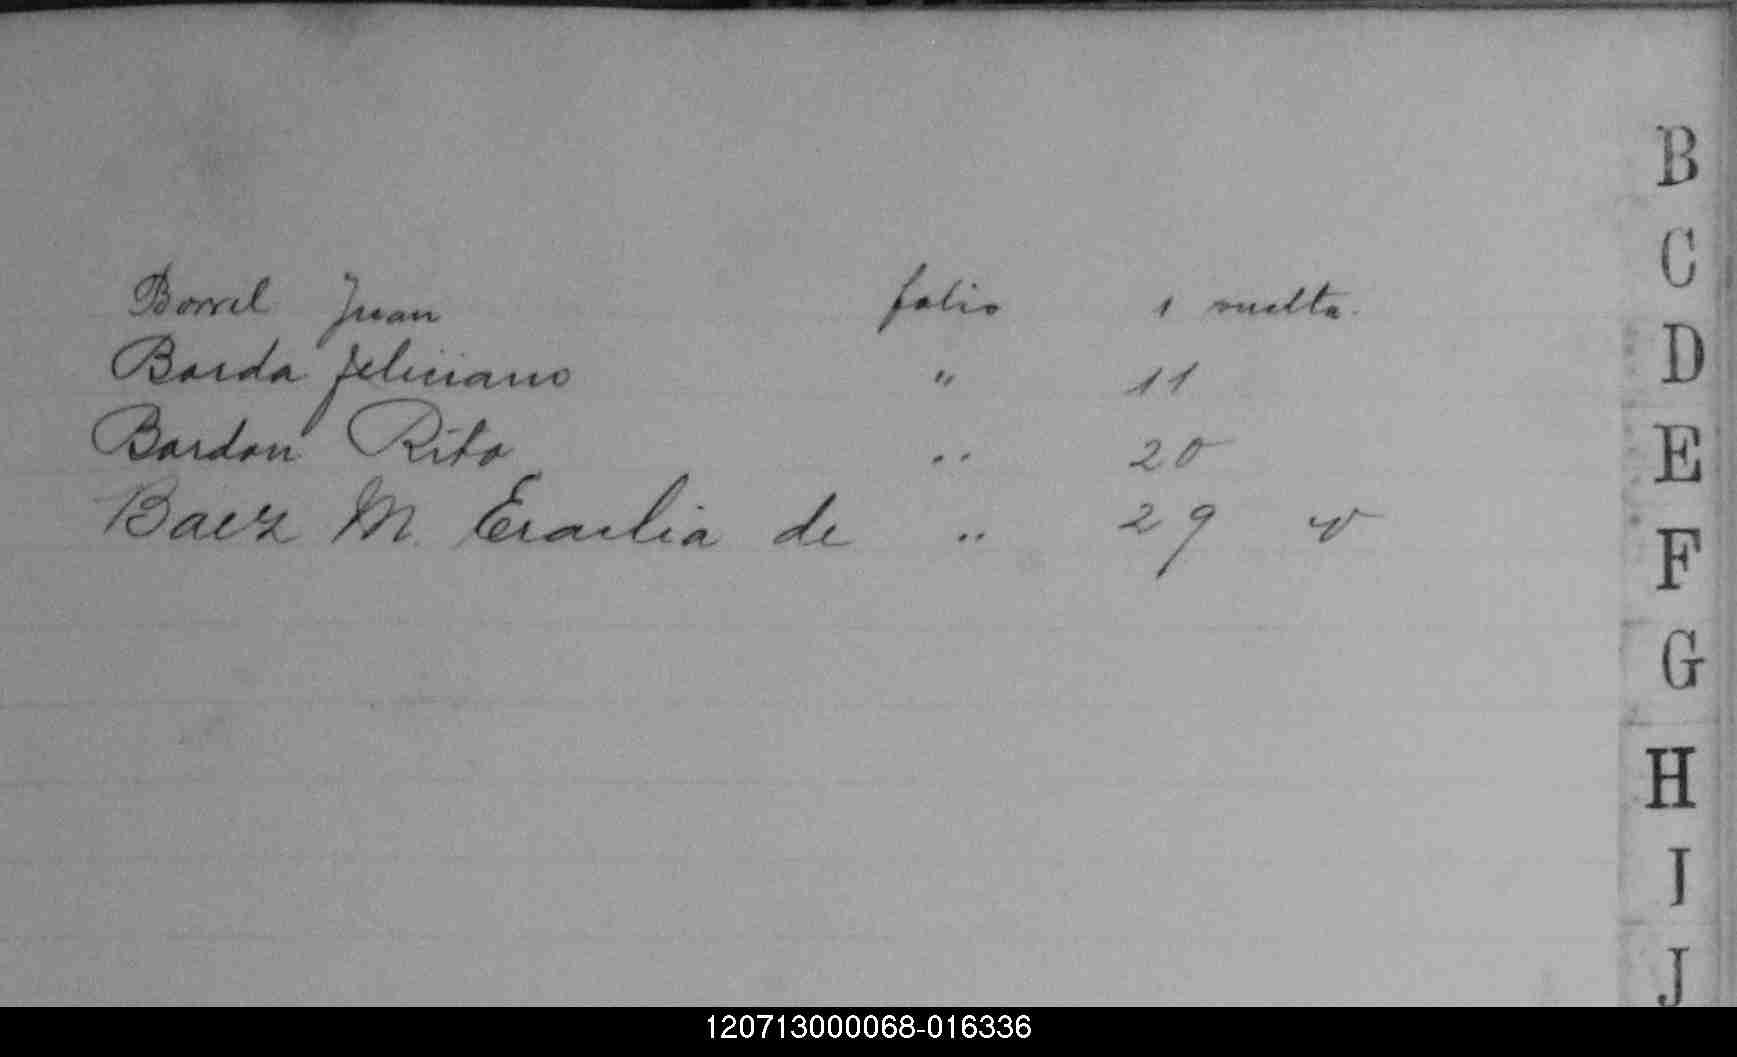 Borrel Juan folio 1 vuelta.
Barda feliciano " 11
Bardon Rita " 20
Baez M. Ersilia de " 29 v
B
C
D
E
F
G
H
I
J
120713000068-016336